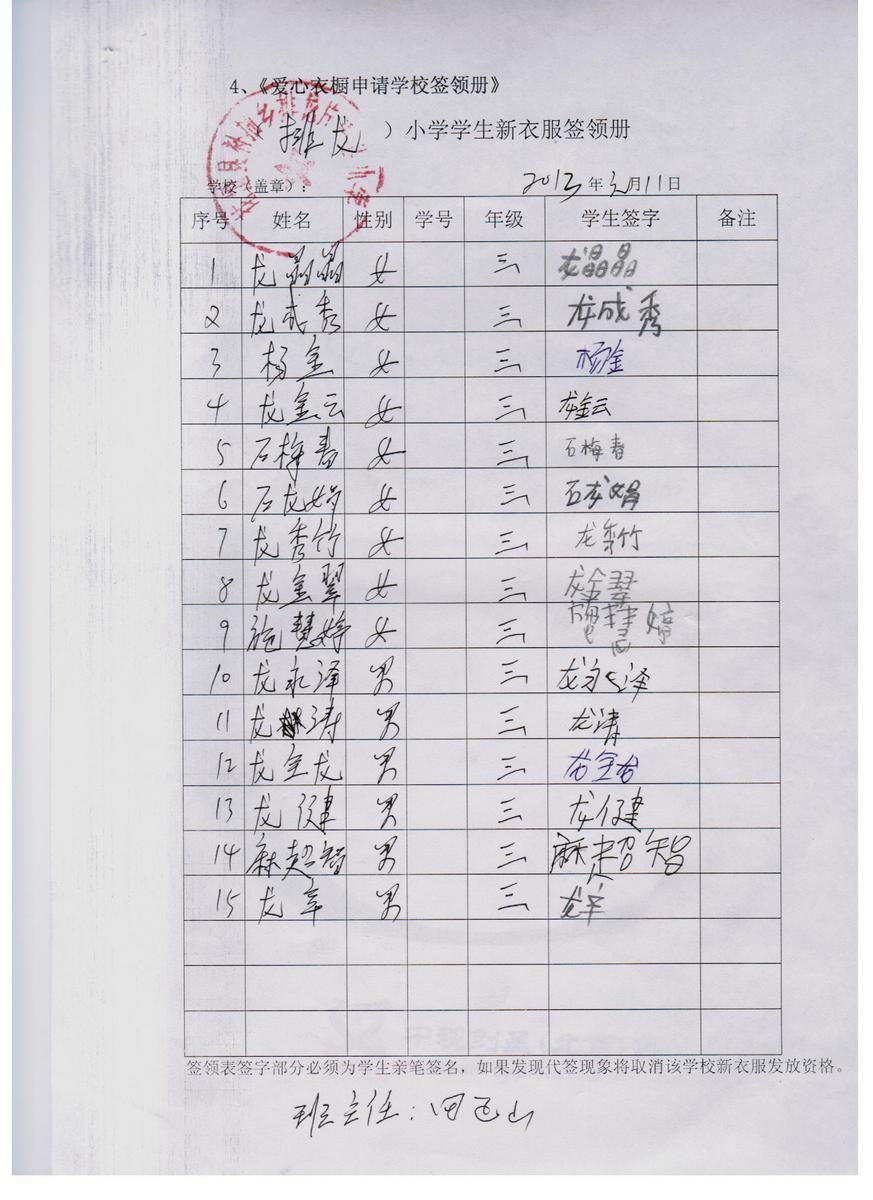 4、《爱心衣橱申请学校签领册》
（排龙）小学学生新衣服签领册
学校（盖章）： 2013年3月11日
序号 姓名 性别 学号 年级 学生签字 备注
1 龙晶晶 女 三 龙晶晶
2 龙成秀 女 三 龙成秀
3 杨金 女 三 杨金
4 龙金云 女 三 龙金云
5 石梅春 女 三 石梅春
6 石龙娟 女 三 石龙娟
7 龙秀竹 女 三 龙秀竹
8 龙金翠 女 三 龙金翠
9 施慧婷 女 三 施慧婷
10 龙永泽 男 三 龙永泽
11 龙涛 男 三 龙涛
12 龙金龙 男 三 龙金龙
13 龙健 男 三 龙健
14 麻超智 男 三 麻超智
15 龙辛 男 三 龙辛
签领表签字部分必须为学生亲笔签名，如果发现代签现象将取消该学校新衣服发放资格。
班主任：田玉山